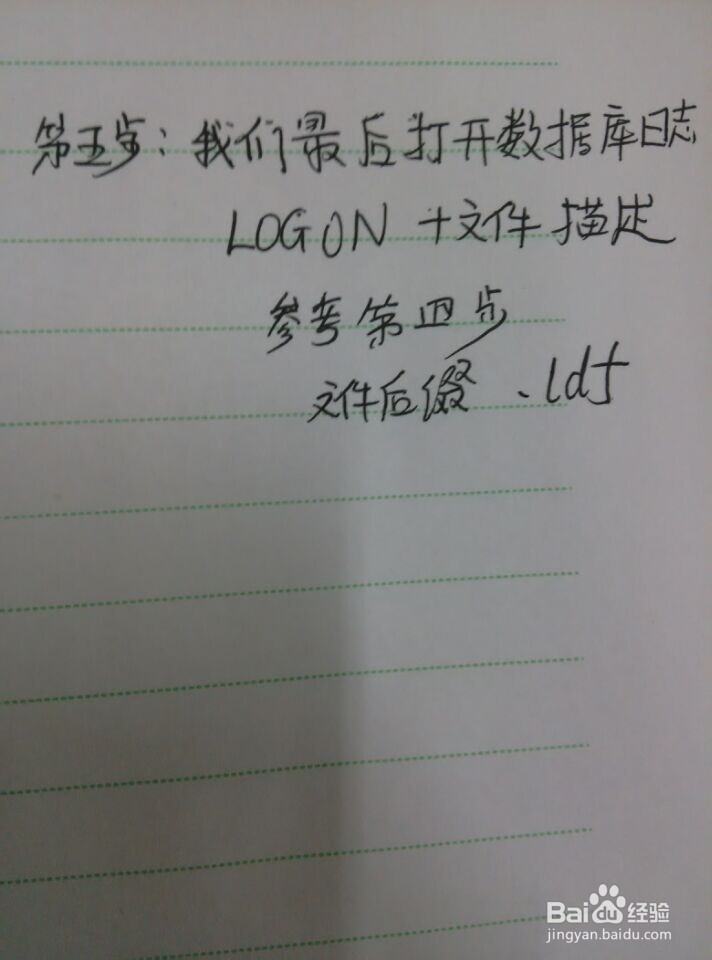 第五步：我们最后打开数据库日志
LOG ON +文件描述
参考第四步
文件后缀 .ldf
Baidu经验
jingyan.baidu.com